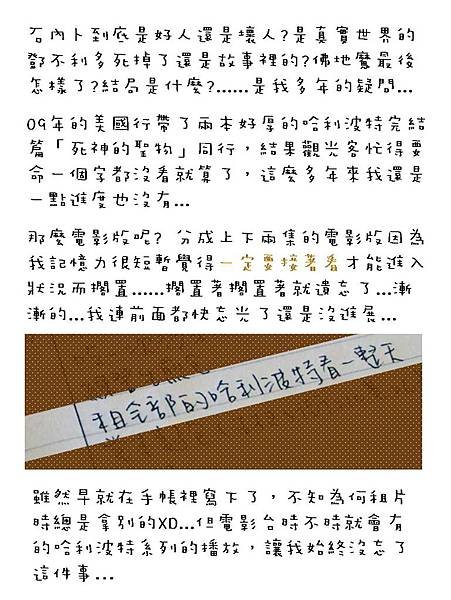 石內卜到底是好人還是壞人?是真實世界的
鄧不利多死掉了還是故事裡的?佛地魔最後
怎樣了?結局是什麼?......是我多年的疑問...
09年的美國行帶了兩本好厚的哈利波特完結
篇「死神的聖物」同行，結果觀光客忙得要
命一個字都沒看就算了，這麼多年來我還是
一點進度也沒有...
那麼電影版呢? 分成上下兩集的電影版因為
我記憶力很短暫覺得一定要接著看才能進入
狀況而擱置......擱置著擱置著就遺忘了...漸
漸的...我連前面都快忘光了還是沒進展...
租全部的哈利波特看一整天
雖然早就在手帳裡寫下了，不知為何租片
時總是拿別的XD...但電影台時不時就會有
的哈利波特系列的播放，讓我始終沒忘了
這件事...